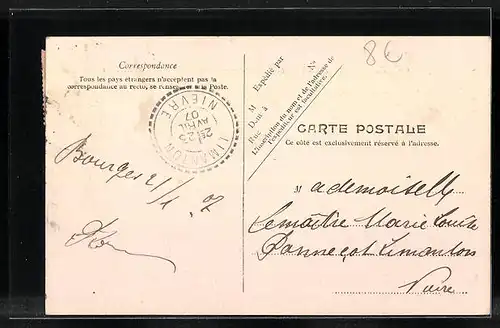 Correspondance
Tous les pays étrangers n'acceptent pas la
correspondance au recto, se renseigner à la Poste.
LIMANTON
NIÈVRE
22
AVRIL
07
Bourges 21/4 07
Expédié par
N°
M
Dem à
Rue
L'inscription du nom et de l'adresse de
l'expéditeur est facultative.
86
CARTE POSTALE
Ce côté est exclusivement réservé à l'adresse.
Mademoiselle
Lemaître Marie Louise
Panneçot Limanton
Nièvre